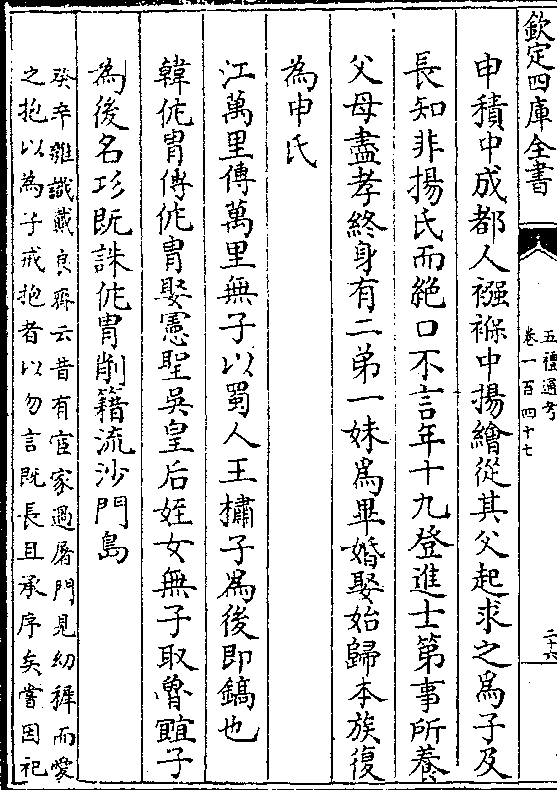 欽定四庫全書
五禮通考
卷一百四十七
二十六
申積中成都人襁褓中揚繪從其父起求之為子及
長知非揚氏而絶口不言年十九登進士第事所養
父母盡孝終身有二弟一妹為畢婚娶始歸本族復
為申氏
江萬里傳萬里無子以蜀人王橚子為後即鎬也
韓侂胄傳侂胄娶憲聖吳皇后姪女無子取魯𡩋子
為後名㣉既誅侂胄削籍流沙門島
癸辛雜識戴良齊云昔有宦家過屠門見幼穉而愛
之抱以為子戒抱者以勿言既長且承序矣嘗因祀